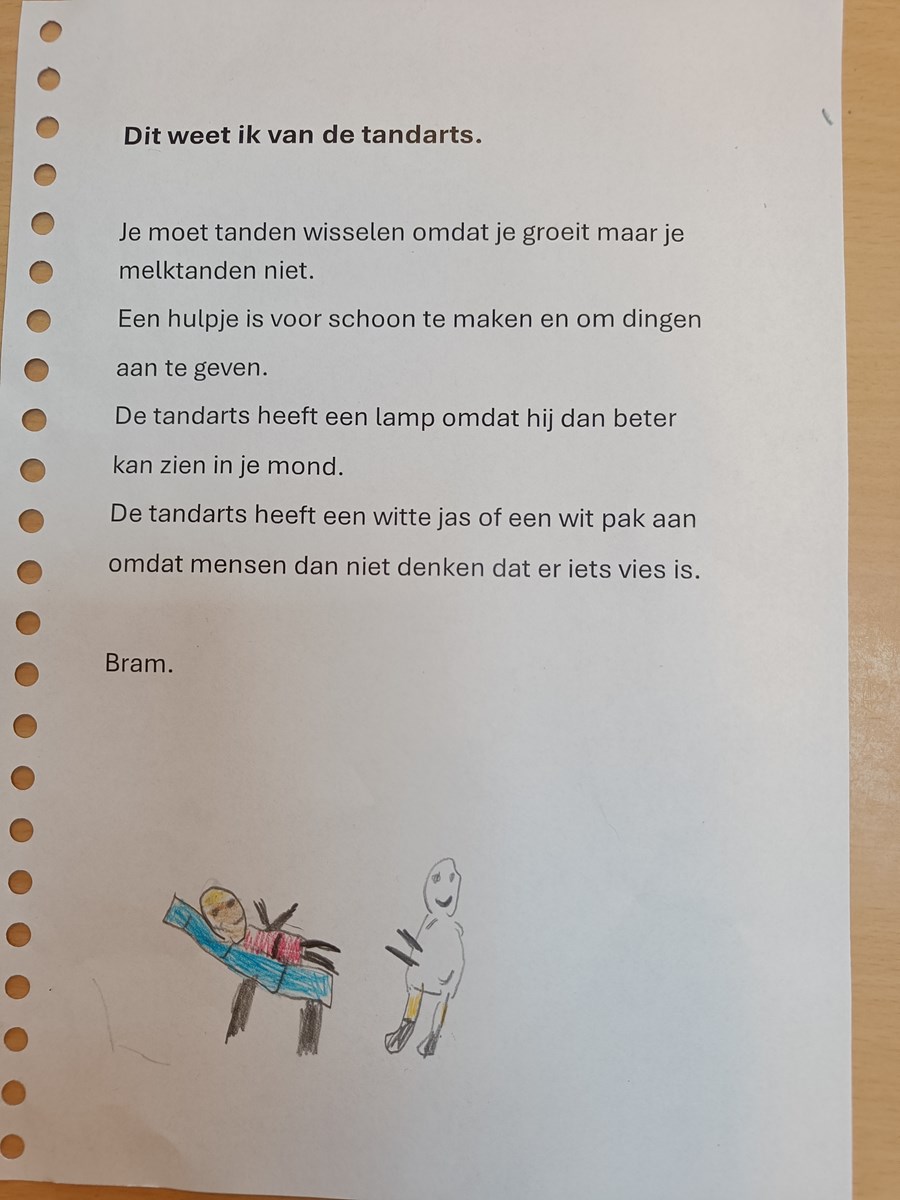 Dit weet ik van de tandarts.
Je moet tanden wisselen omdat je groeit maar je
melktanden niet.
Een hulpje is voor schoon te maken en om dingen
aan te geven.
De tandarts heeft een lamp omdat hij dan beter
kan zien in je mond.
De tandarts heeft een witte jas of een wit pak aan
omdat mensen dan niet denken dat er iets vies is.
Bram.